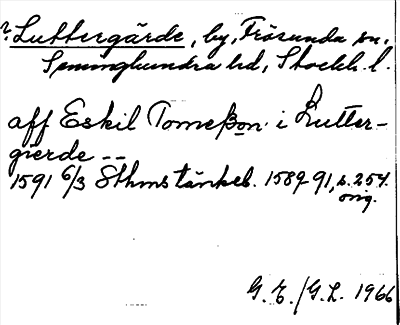 ? Luttergärde, by, Frösunda sn,
Seminghundra hd, Stockh. l.
aff Eskil Tomeßon i Lutter-
gierde --
1591 6/3 Sthms tänkeb. 1589-91, s. 254.
orig.
G. E. / G. L. 1966